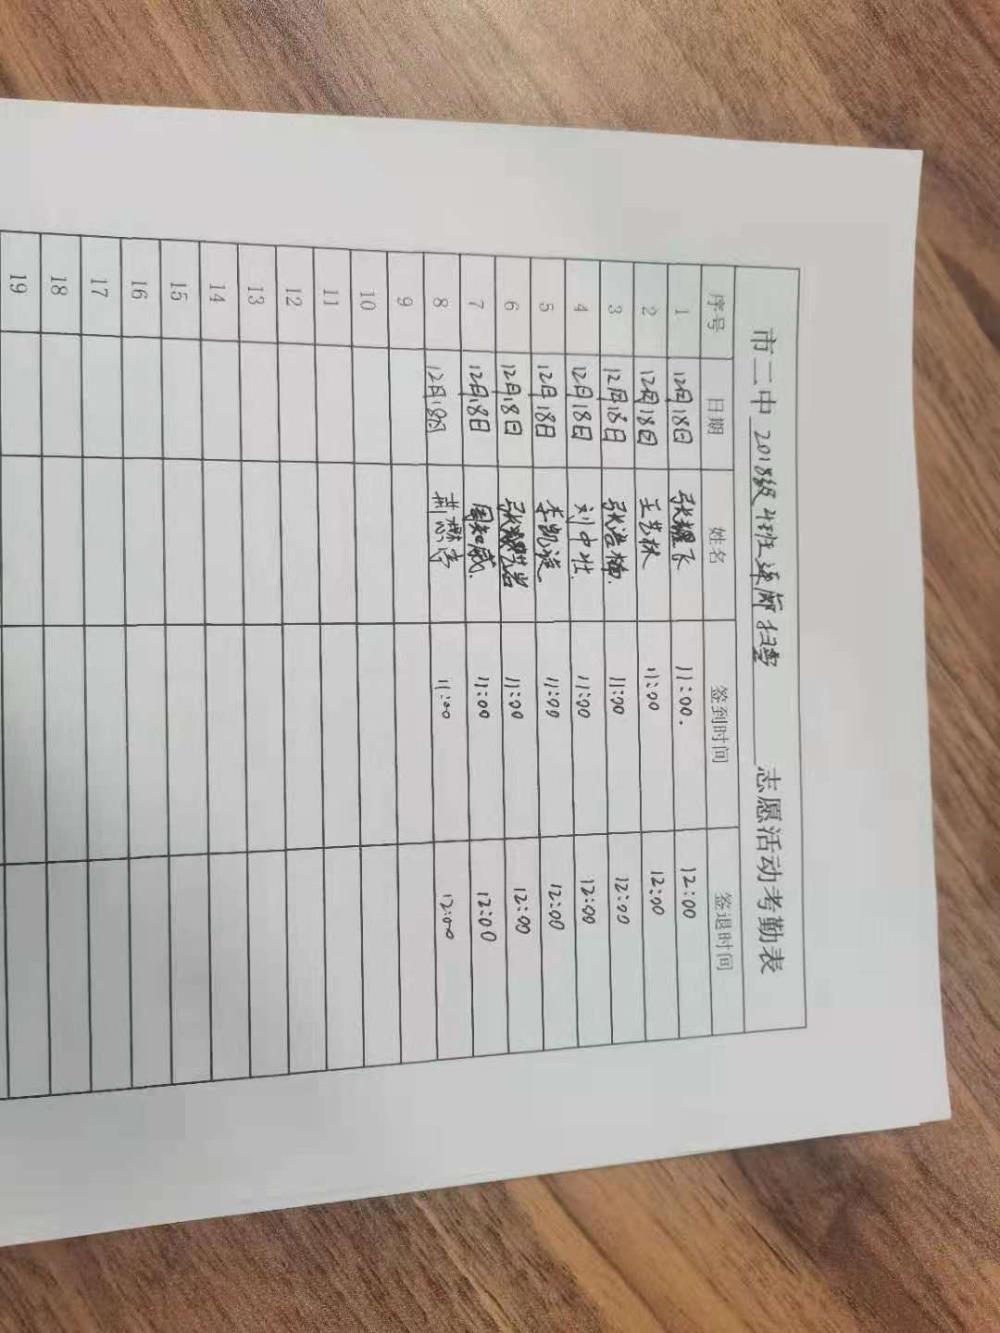 市二中 2018级4班连廊扫雪 志愿活动考勤表
序号 日期 姓名 签到时间 签退时间
1 12月18日 张耀飞 11:00. 12:00
2 12月18日 王艺林 11:00 12:00
3 12月18日 张浩楠. 11:00 12:00
4 12月18日 刘中壮. 11:00 12:00
5 12月18日 李凯旋 11:00 12:00
6 12月18日 11:00 12:00
7 12月18日 周知威. 11:00 12:00
8 12月18日 11:00 12:00
9
10
11
12
13
14
15
16
17
18
19